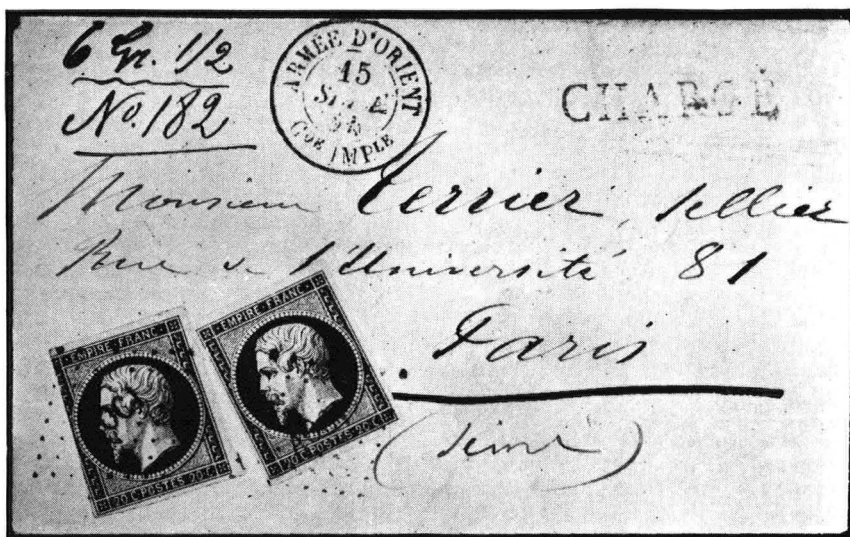 6 Gr. 1/2
No. 182
ARMÉE D'ORIENT
15
SEPT. E
Gde IMPle
CHARGÉ
Monsieur Terrier, Sellier
Rue de l'Université 81
Paris
(Seine)
EMPIRE FRANC.
20 C. POSTES 20 C.
EMPIRE FRANC.
20 C. POSTES 20 C.